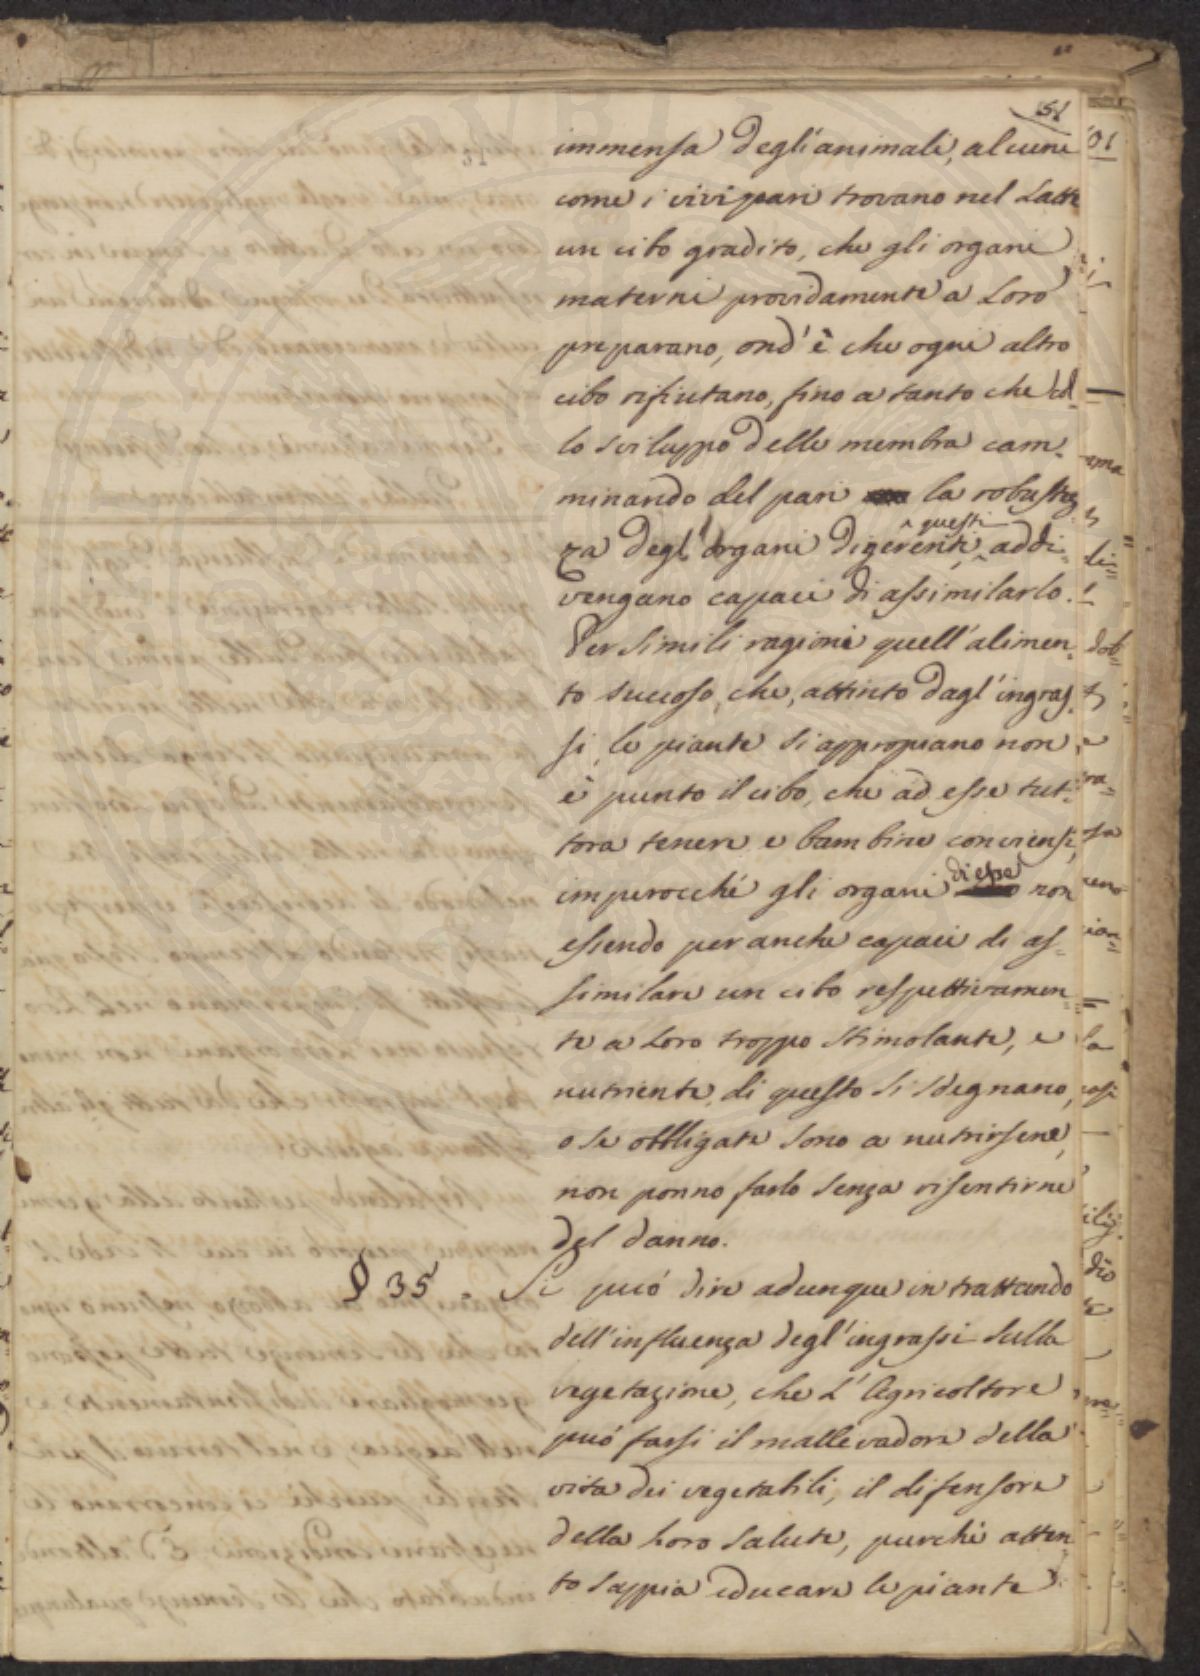 51
immensa degl'animali, alcuni
come i vivipari trovano nel Latte
un cibo gradito, che gli organi
materni providamente a Loro
preparano, ond'è che ogni altro
cibo rifiutano, fino a tanto che col
lo sviluppo delle membra cam-
minando del pari la robustez-
za degl'organi digerenti, questi addi-
vengano capaci di assimilarlo.
Per simili ragioni quell'alimen-
to succoso, che, attinto dagl'ingras-
si, le piante si appropiano non
è punto il cibo, che ad esse tut-
tora tenere e bambine conviensi,
imperocché gli organi di esse non
essendo per anche capaci di as-
similare un cibo respettivamen-
te a Loro troppo stimolante, e
nutriente, di questo si sdegnano,
o se obbligate sono a nutrirsene,
non ponno farlo senza risentirne
del danno.
§ 35. Si può dire adunque in trattando
dell'influenza degl'ingrassi sulla
vegetazione, che L'Agricoltore
può farsi il mallevadore della
vita dei vegetabili, il difensore
della Loro salute, purchè atten-
to sappia educare le piante